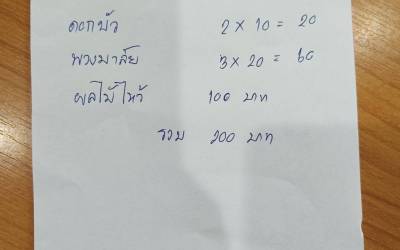 ดอกบัว 2 × 10 = 20
พวงมาลัย 3 × 20 = 60
ผลไม้ไหว้ 100 บาท
รวม 200 บาท